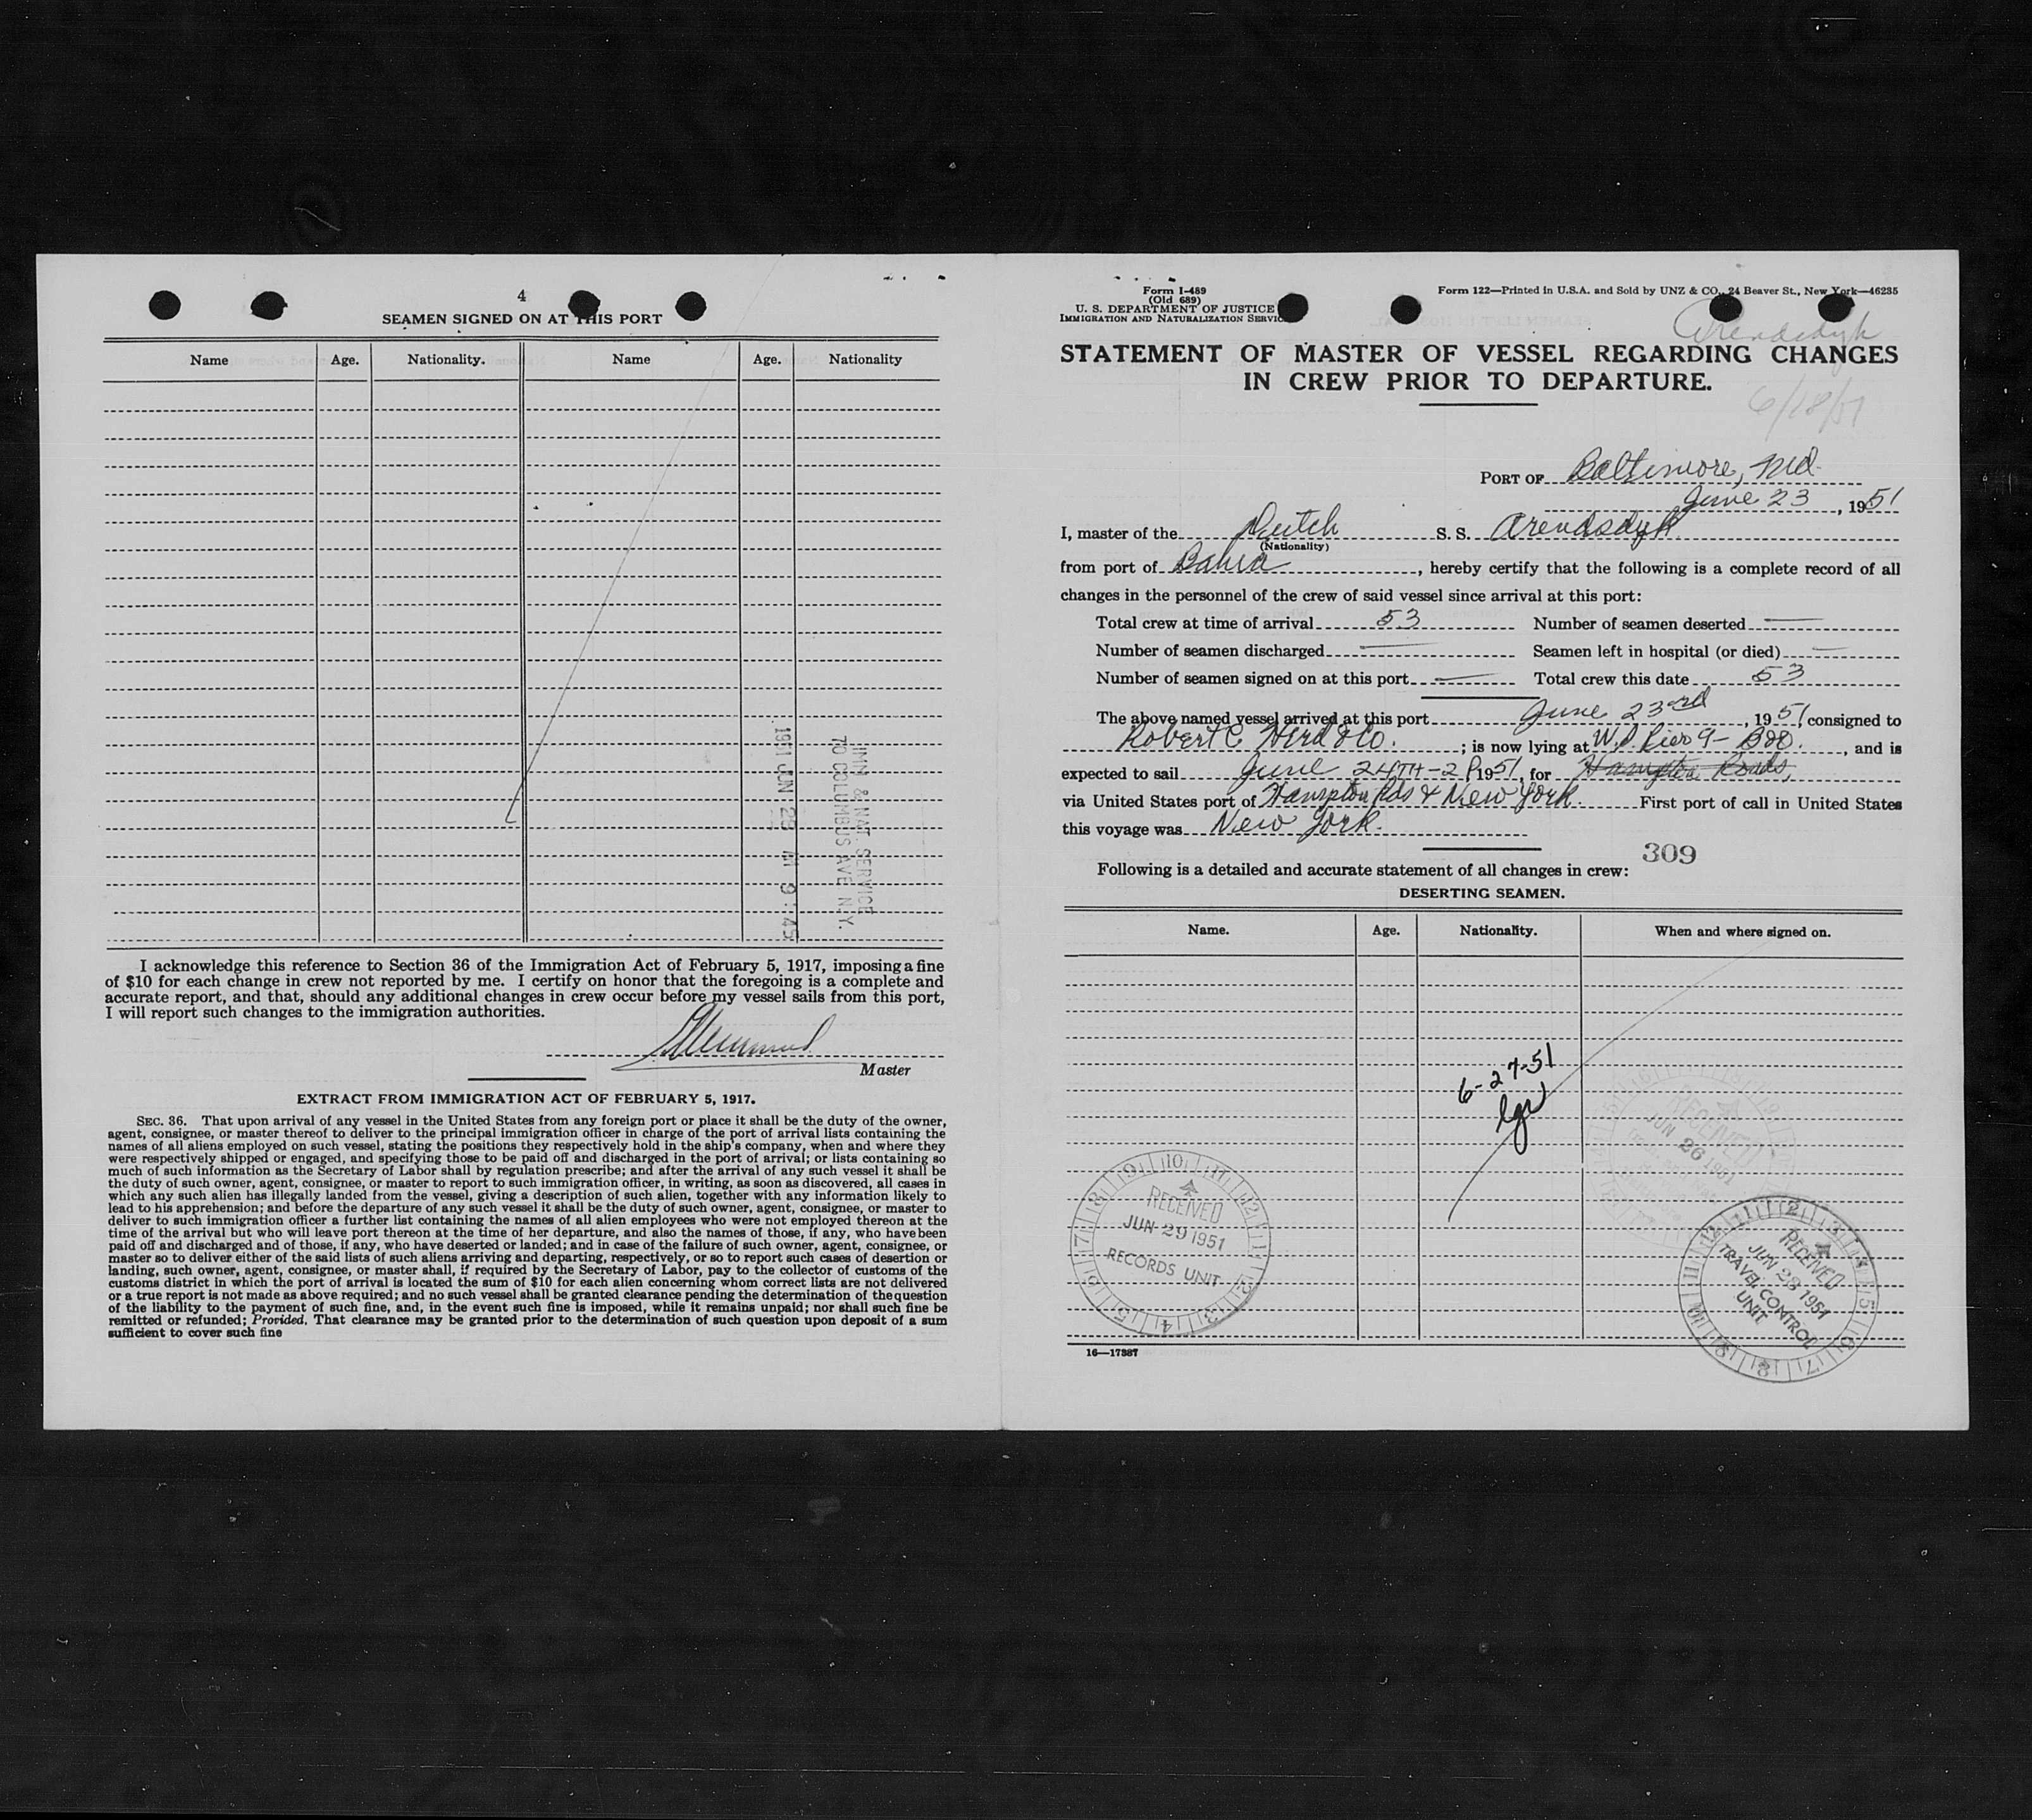 4
SEAMEN SIGNED ON AT THIS PORT
Name Age. Nationality. Name Age. Nationality
IMM & NAT SERVICE
70 COLUMBUS AVE N.Y.
1951 JUN 29 AM 9:45
I acknowledge this reference to Section 36 of the Immigration Act of February 5, 1917, imposing a fine
of $10 for each change in crew not reported by me. I certify on honor that the foregoing is a complete and
accurate report, and that, should any additional changes in crew occur before my vessel sails from this port,
I will report such changes to the immigration authorities.
Master
EXTRACT FROM IMMIGRATION ACT OF FEBRUARY 5, 1917.
SEC. 36. That upon arrival of any vessel in the United States from any foreign port or place it shall be the duty of the owner,
agent, consignee, or master thereof to deliver to the principal immigration officer in charge of the port of arrival lists containing the
names of all aliens employed on such vessel, stating the positions they respectively hold in the ship's company, when and where they
were respectively shipped or engaged, and specifying those to be paid off and discharged in the port of arrival; or lists containing so
much of such information as the Secretary of Labor shall by regulation prescribe; and after the arrival of any such vessel it shall be
the duty of such owner, agent, consignee, or master to report to such immigration officer, in writing, as soon as discovered, all cases in
which any such alien has illegally landed from the vessel, giving a description of such alien, together with any information likely to
lead to his apprehension; and before the departure of any such vessel it shall be the duty of such owner, agent, consignee, or master to
deliver to such immigration officer a further list containing the names of all alien employees who were not employed thereon at the
time of the arrival but who will leave port thereon at the time of her departure, and also the names of those, if any, who have been
paid off and discharged and of those, if any, who have deserted or landed; and in case of the failure of such owner, agent, consignee, or
master so to deliver either of the said lists of such aliens arriving and departing, respectively, or so to report such cases of desertion or
landing, such owner, agent, consignee, or master shall, if required by the Secretary of Labor, pay to the collector of customs of the
customs district in which the port of arrival is located the sum of $10 for each alien concerning whom correct lists are not delivered
or a true report is not made as above required; and no such vessel shall be granted clearance pending the determination of the question
of the liability to the payment of such fine, and, in the event such fine is imposed, while it remains unpaid; nor shall such fine be
remitted or refunded; Provided, That clearance may be granted prior to the determination of such question upon deposit of a sum
sufficient to cover such fine
Form I-489
(Old 689)
U. S. DEPARTMENT OF JUSTICE
IMMIGRATION AND NATURALIZATION SERVICE
Form 122—Printed in U.S.A. and Sold by UNZ & CO., 24 Beaver St., New York—46235
Arendsdyk
STATEMENT OF MASTER OF VESSEL REGARDING CHANGES
IN CREW PRIOR TO DEPARTURE.
6/18/51
PORT OF Baltimore, Md.
June 23, 1951
I, master of the Dutch S. S. Arendsdyk
(Nationality)
from port of Bahia, hereby certify that the following is a complete record of all
changes in the personnel of the crew of said vessel since arrival at this port:
Total crew at time of arrival 53 Number of seamen deserted —
Number of seamen discharged — Seamen left in hospital (or died) —
Number of seamen signed on at this port — Total crew this date 53
The above named vessel arrived at this port June 23rd, 1951, consigned to
Robert C Herd & Co. ; is now lying at W.P. Pier 9 -, and is
expected to sail June 24TH - 2 P 1951, for Hampton Roads,
via United States port of Hampton Rds & New York. First port of call in United States
this voyage was New York.
309
Following is a detailed and accurate statement of all changes in crew:
DESERTING SEAMEN.
Name. Age. Nationality. When and where signed on.
6-27-51
RECEIVED
JUN 26 1951
RECEIVED
JUN 29 1951
RECORDS UNIT
RECEIVED
JUN 28 1951
TRAVEL CONTROL
UNIT
16—17387